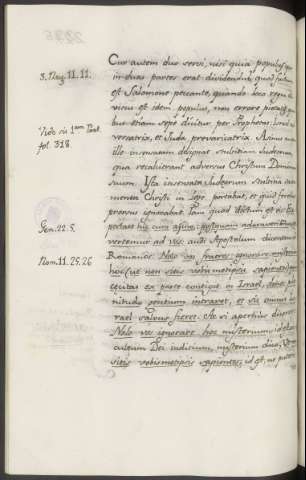 3. Reg. 11. 11.
Vide in 1am Part.
fol. 318.
Gen. 22. 5.
Rom. 11. 25. 26
Cur autem duo servi, nisi quia populus
in duas partes erat dividendus, quod factum
est Salomone peccante, quando duo regna
idem populus, non errore
etiam sepe dicitur per Prophetas:
et Juda prævaricatrix. Asinus autem
ille insensatam designat stultitiam Judæorum
qua recalcitrant adversus Christum Dominum
suum. Ista insensata Judæorum stultitia
menta Christi in sepe portabat, et quid ferebat
prorsus ignorabat. Jam quod dictum est eis: Ex
pectate hic cum asino: postquam adoraverimus re
vertemur ad vos: audi Apostolum dicentem
Romanis: Nolo vos fratres ignorare mysterium
hoc (ut non sitis vobis metipsis sapientes) quia
cæcitas ex parte contigit in Israel, donec ple
nitudo gentium intraret, et sic omnis Is
rael salvus fieret. Ac si apertius diceret:
Nolo vos ignorare hoc mysterium id est oc
cultum Dei judicium, mysterium dico, Ut non
sitis vobis metipsis sapientes, id est, ne putetis